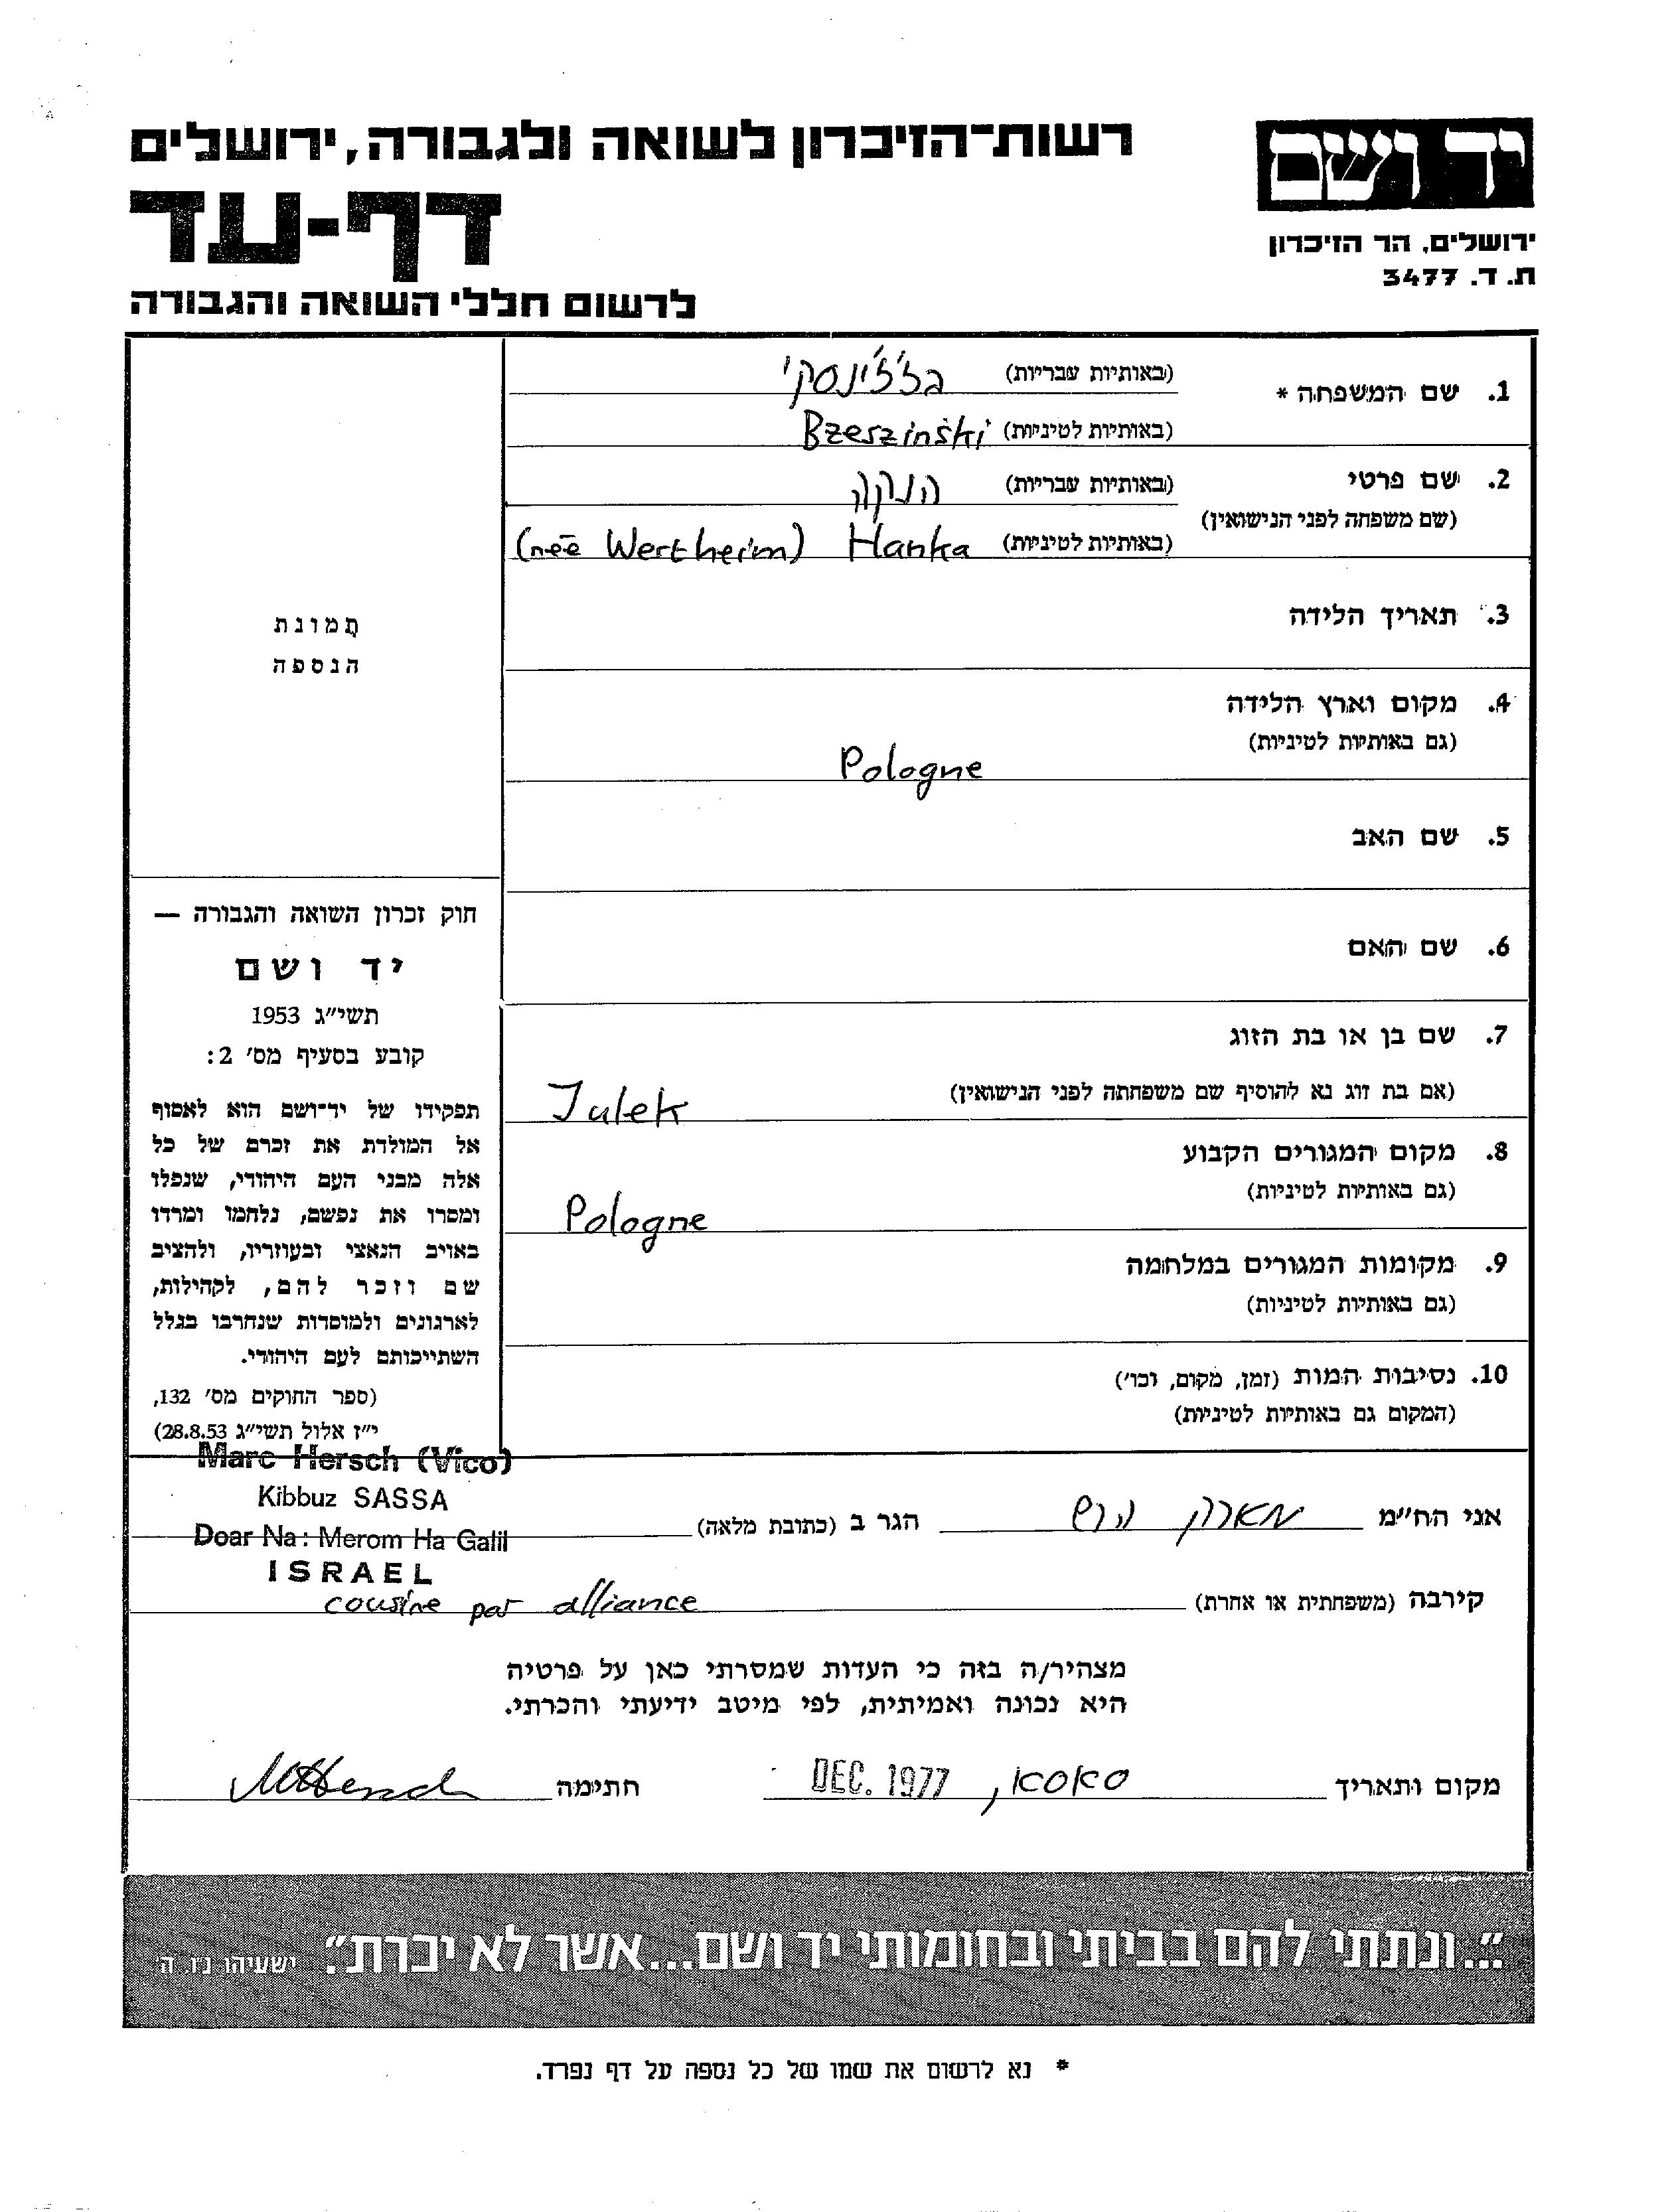 רשות־הזיכרון לשואה ולגבורה, ירושלים
דף-עד
לרשום חללי השואה והגבורה
יד ושם
ירושלים, הר הזיכרון
ת. ד. 3477
1. שם המשפחה * (באותיות עבריות) בז'ז'ינסקי
(באותיות לטיניות) Bzeszinśki
2. שם פרטי (באותיות עבריות) הנקה
(שם משפחה לפני הנישואין)
(באותיות לטיניות) Hanka (née Wertheim)
3. תאריך הלידה
4. מקום וארץ הלידה
(גם באותיות לטיניות)
Pologne
5. שם האב
6. שם האם
7. שם בן או בת הזוג
(אם בת זוג נא להוסיף שם משפחתה לפני הנישואין) Julek
8. מקום המגורים הקבוע
(גם באותיות לטיניות)
Pologne
9. מקומות המגורים במלחמה
(גם באותיות לטיניות)
10. נסיבות המות (זמן, מקום, וכו')
(המקום גם באותיות לטיניות)
תמונת
הנספה
חוק זכרון השואה והגבורה —
יד ושם
תשי"ג 1953
קובע בסעיף מס' 2:
תפקידו של יד־ושם הוא לאסוף
אל המולדת את זכרם של כל
אלה מבני העם היהודי, שנפלו
ומסרו את נפשם, נלחמו ומרדו
באויב הנאצי ובעוזריו, ולהציב
שם וזכר להם, לקהילות,
לארגונים ולמוסדות שנחרבו בגלל
השתייכותם לעם היהודי.
(ספר החוקים מס' 132,
י"ז אלול תשי"ג 28.8.53)
אני הח"מ מארק הרש הגר ב (כתובת מלאה)
Marc Hersch (Vico)
Kibbuz SASSA
Doar Na: Merom Ha Galil
ISRAEL
קירבה (משפחתית או אחרת) cousine par alliance
מצהיר/ה בזה כי העדות שמסרתי כאן על פרטיה
היא נכונה ואמיתית, לפי מיטב ידיעתי והכרתי.
מקום ותאריך סאסא, DEC. 1977 חתימה
"...ונתתי להם בביתי ובחומותי יד ושם...אשר לא יכרת". ישעיהו נ"ו. ה'
* נא לרשום את שמו של כל נספה על דף נפרד.